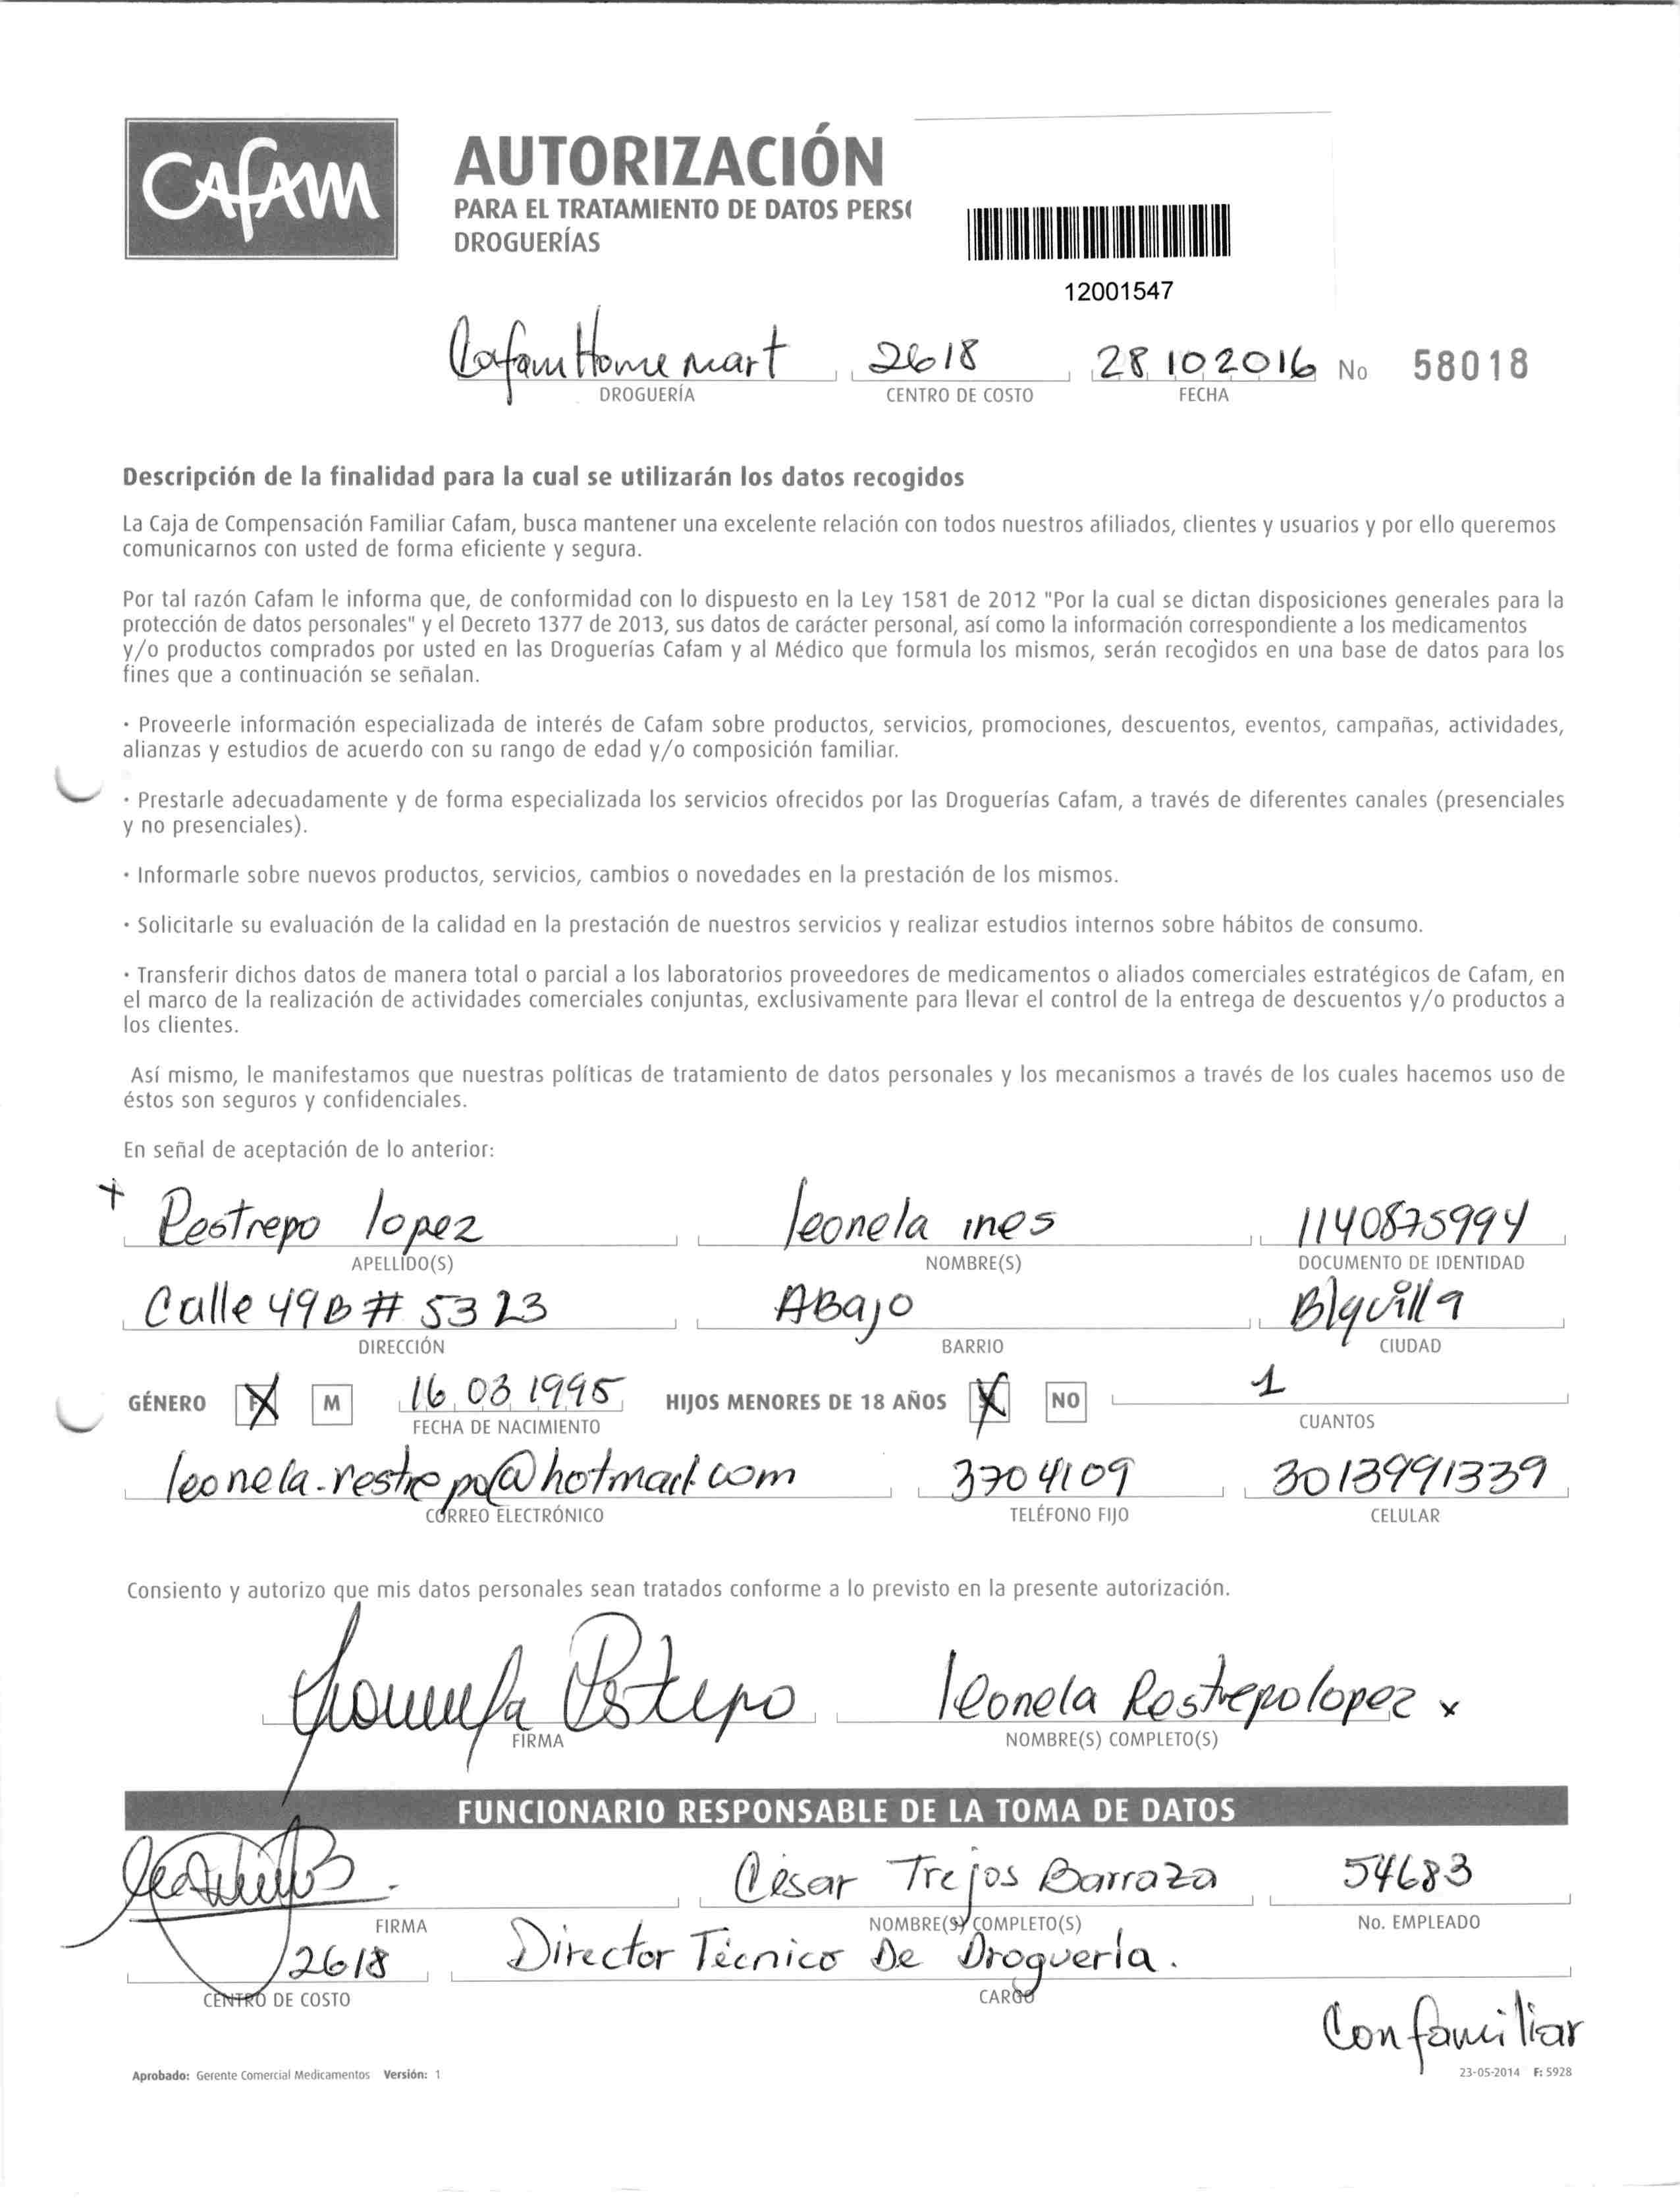 CAFAM
AUTORIZACIÓN
PARA EL TRATAMIENTO DE DATOS PERS
DROGUERÍAS
12001547
Cafam Home mart 2618 28 10 2016 No 58018
DROGUERÍA CENTRO DE COSTO FECHA
Descripción de la finalidad para la cual se utilizarán los datos recogidos
La Caja de Compensación Familiar Cafam, busca mantener una excelente relación con todos nuestros afiliados, clientes y usuarios y por ello queremos
comunicarnos con usted de forma eficiente y segura.
Por tal razón Cafam le informa que, de conformidad con lo dispuesto en la Ley 1581 de 2012 "Por la cual se dictan disposiciones generales para la
protección de datos personales" y el Decreto 1377 de 2013, sus datos de carácter personal, así como la información correspondiente a los medicamentos
y/o productos comprados por usted en las Droguerías Cafam y al Médico que formula los mismos, serán recogidos en una base de datos para los
fines que a continuación se señalan.
· Proveerle información especializada de interés de Cafam sobre productos, servicios, promociones, descuentos, eventos, campañas, actividades,
alianzas y estudios de acuerdo con su rango de edad y/o composición familiar.
· Prestarle adecuadamente y de forma especializada los servicios ofrecidos por las Droguerías Cafam, a través de diferentes canales (presenciales
y no presenciales).
· Informarle sobre nuevos productos, servicios, cambios o novedades en la prestación de los mismos.
· Solicitarle su evaluación de la calidad en la prestación de nuestros servicios y realizar estudios internos sobre hábitos de consumo.
· Transferir dichos datos de manera total o parcial a los laboratorios proveedores de medicamentos o aliados comerciales estratégicos de Cafam, en
el marco de la realización de actividades comerciales conjuntas, exclusivamente para llevar el control de la entrega de descuentos y/o productos a
los clientes.
Así mismo, le manifestamos que nuestras políticas de tratamiento de datos personales y los mecanismos a través de los cuales hacemos uso de
éstos son seguros y confidenciales.
En señal de aceptación de lo anterior:
+ Restrepo lopez leonela ines 1140875994
APELLIDO(S) NOMBRE(S) DOCUMENTO DE IDENTIDAD
Calle 49B # 53 23 ABajo B/quilla
DIRECCIÓN BARRIO CIUDAD
GÉNERO F X M 16 03 1995 HIJOS MENORES DE 18 AÑOS X NO 1
FECHA DE NACIMIENTO CUANTOS
leonela-restrepo@hotmail.com 3704109 3013991339
CORREO ELECTRÓNICO TELÉFONO FIJO CELULAR
Consiento y autorizo que mis datos personales sean tratados conforme a lo previsto en la presente autorización.
Leonela Restrepo leonela Restrepo lopez x
FIRMA NOMBRE(S) COMPLETO(S)
FUNCIONARIO RESPONSABLE DE LA TOMA DE DATOS
César Trejos Barraza 54683
FIRMA NOMBRE(S) COMPLETO(S) No. EMPLEADO
2618 Director Técnico De Droguería.
CENTRO DE COSTO CARGO
Confamiliar
Aprobado: Gerente Comercial Medicamentos Versión: 1 23-05-2014 F: 5928